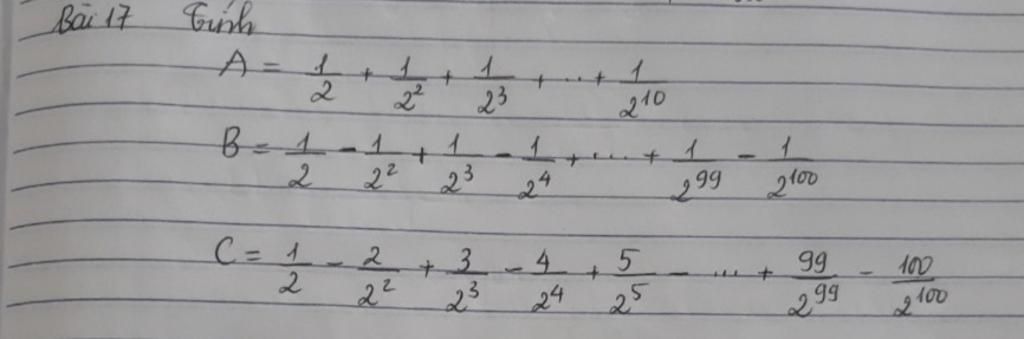 Bài 17 Tính
A = 1/2 + 1/2² + 1/2³ + ... + 1/2¹⁰
B = 1/2 - 1/2² + 1/2³ - 1/2⁴ + ... + 1/2⁹⁹ - 1/2¹⁰⁰
C = 1/2 - 2/2² + 3/2³ - 4/2⁴ + 5/2⁵ - ... + 99/2⁹⁹ - 100/2¹⁰⁰